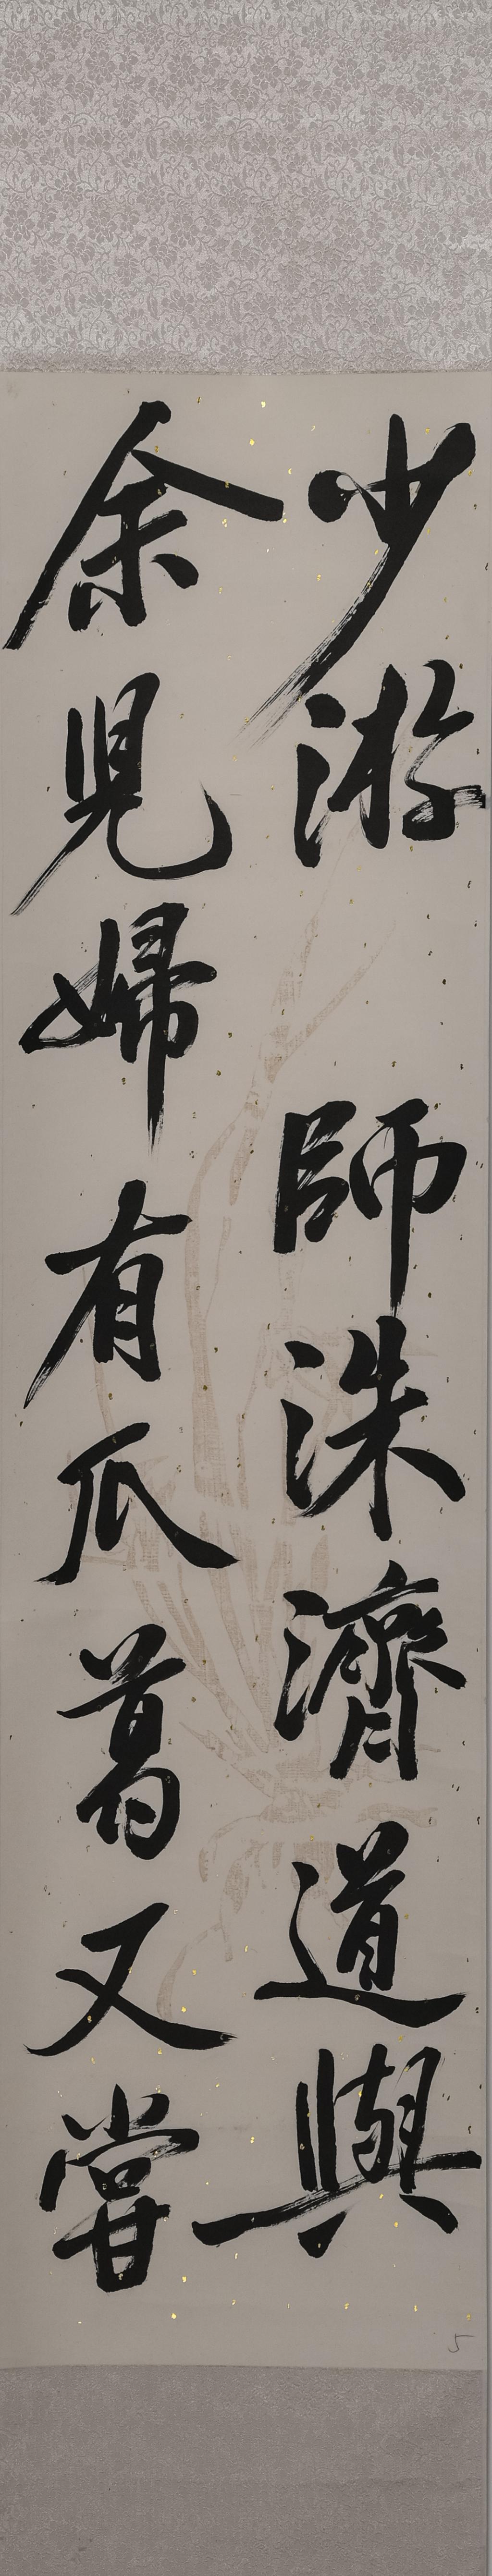 少游 師洙濟道與
余見婦有瓜葛又嘗
5